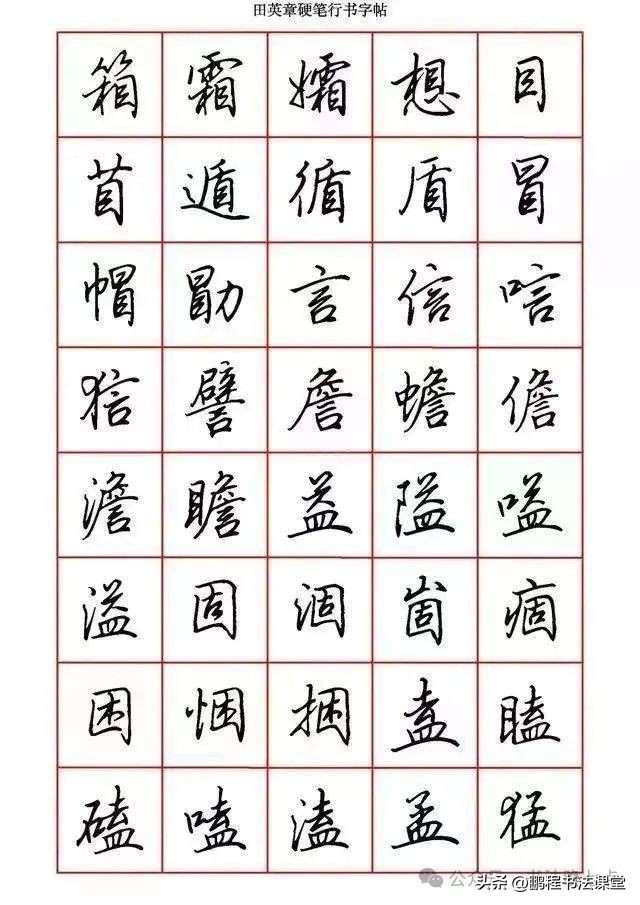 田英章硬笔行书字帖
箱霜孀想目
苜遁循盾冒
帽勖言信唁
狺譬詹蟾儋
澹瞻益隘嗌
溢固涸崮痼
困悃捆盍瞌
磕嗑溘孟猛
头条@鹏程书法课堂